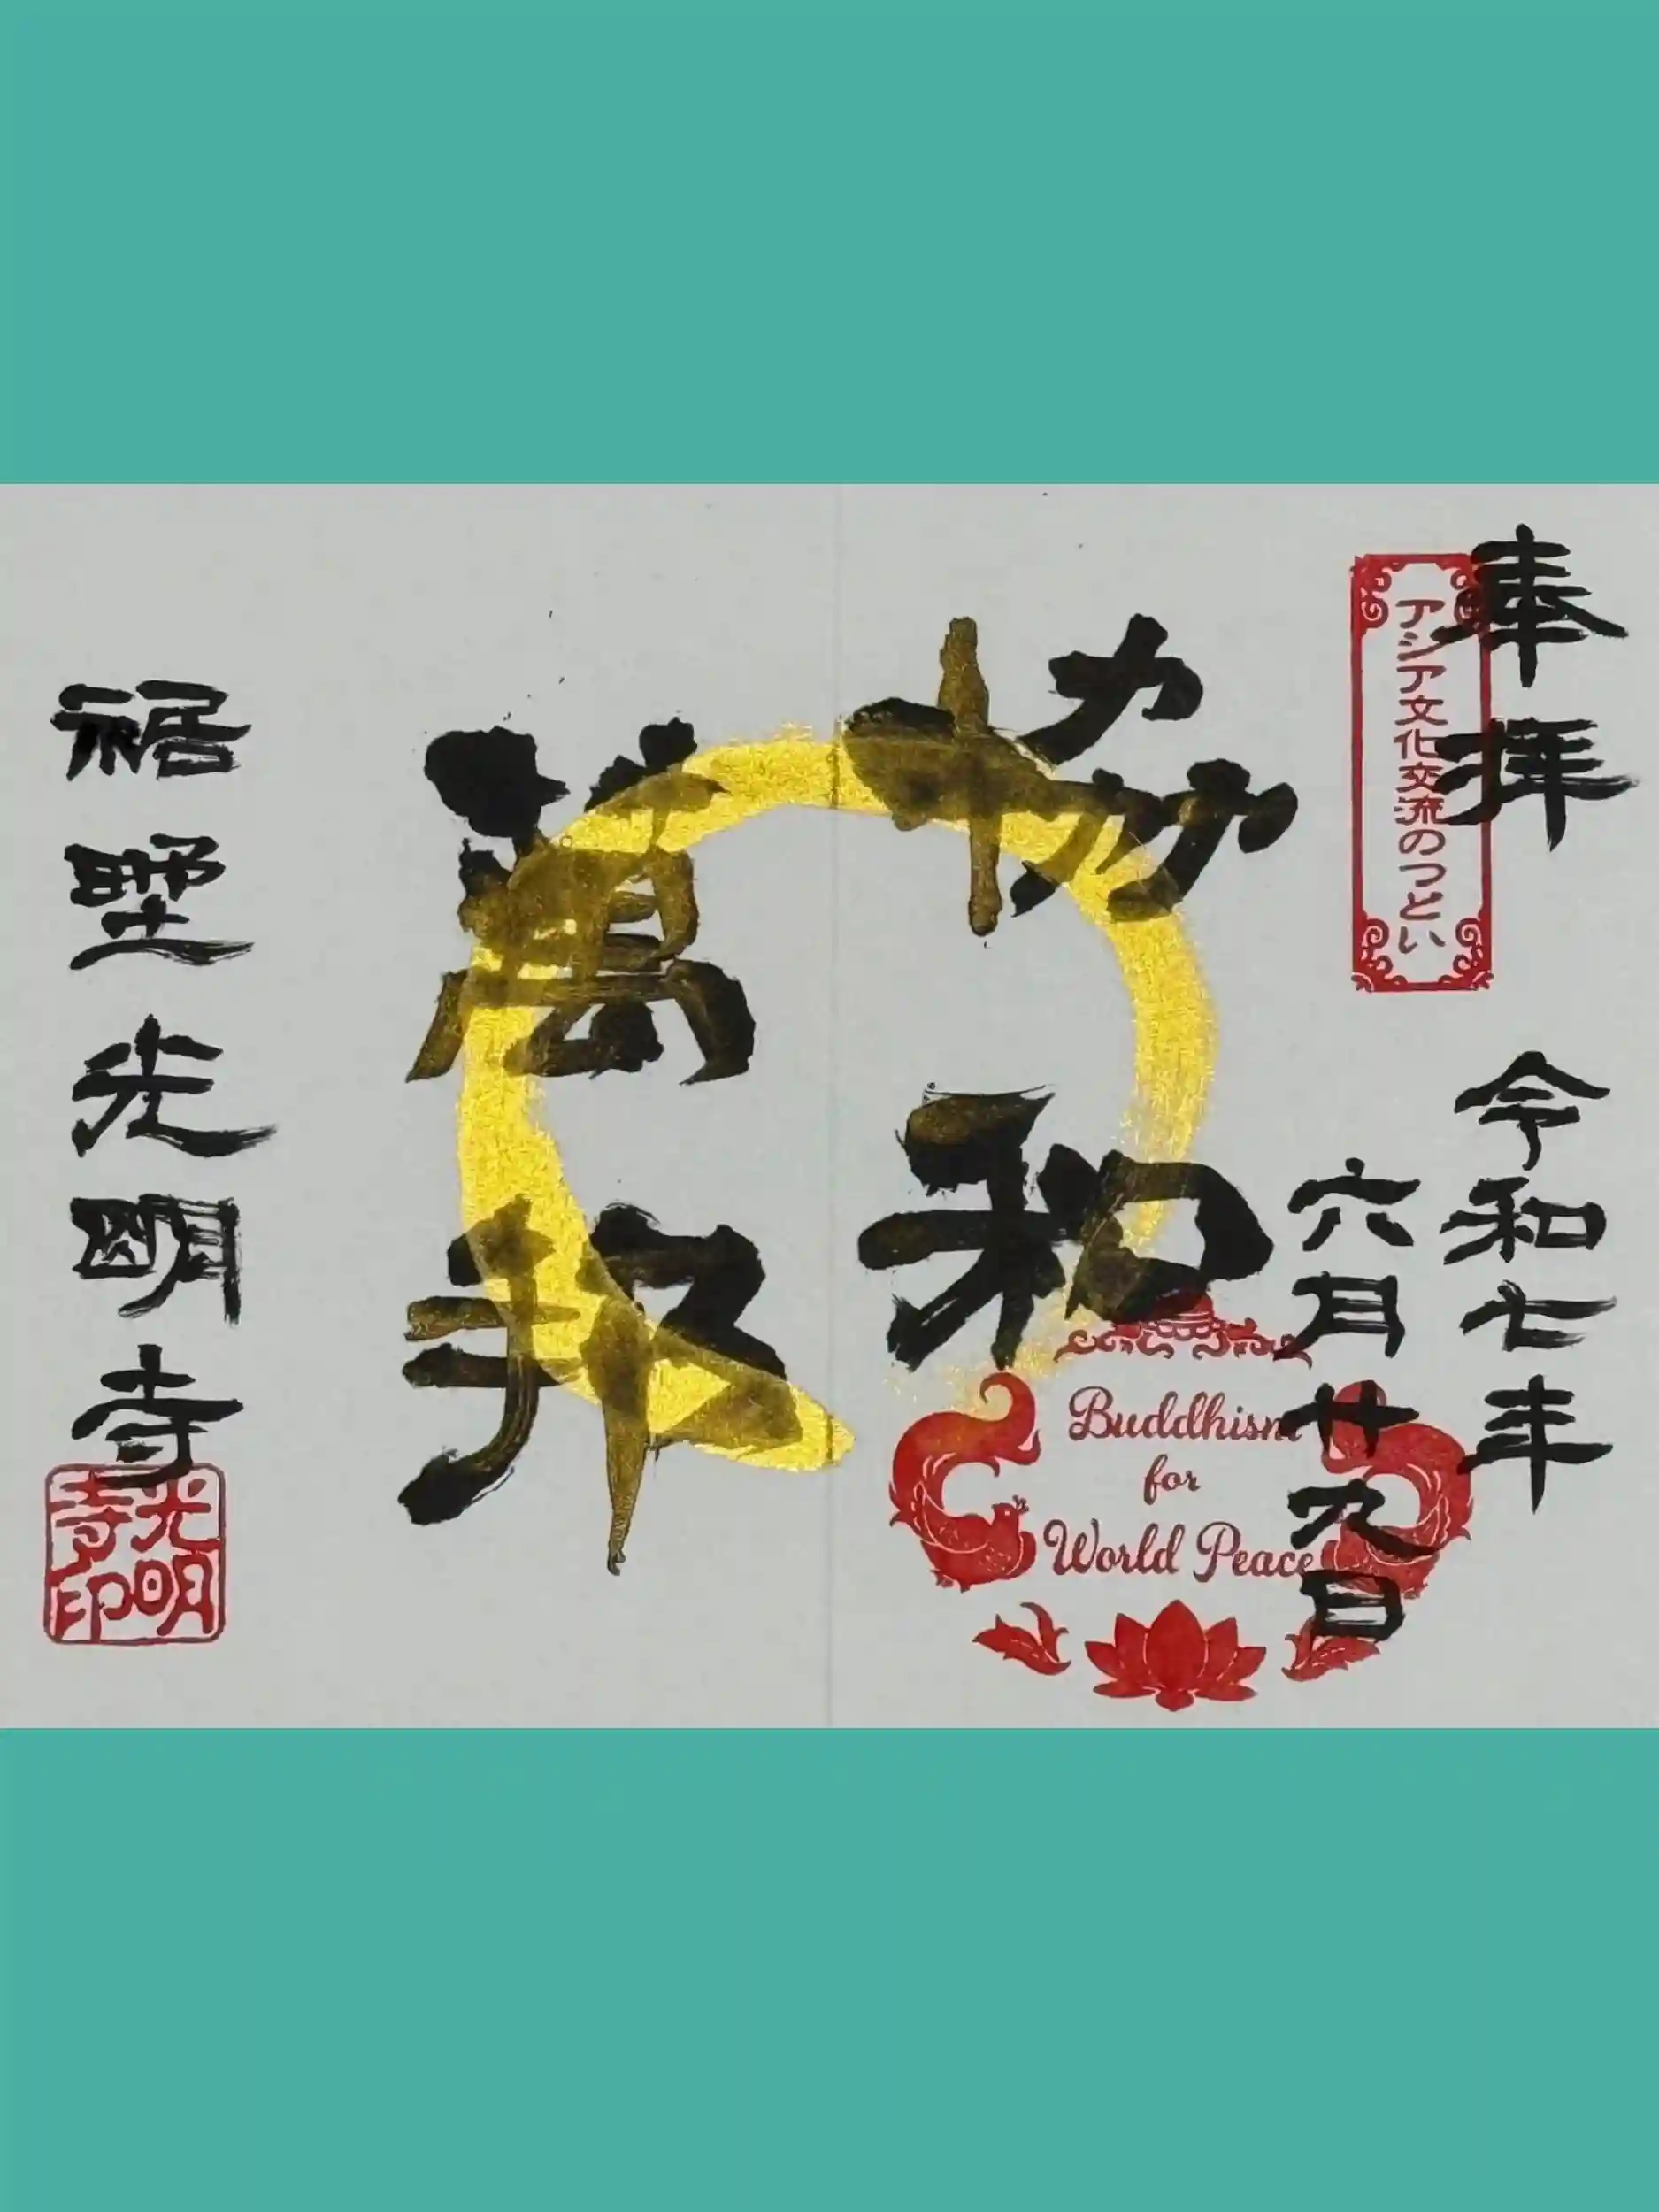 奉拝
アジア文化交流のつどい
令和七年
六月廿九日
協和
萬邦
Buddhism
for
World Peace
裾野光明寺
光明
寺印